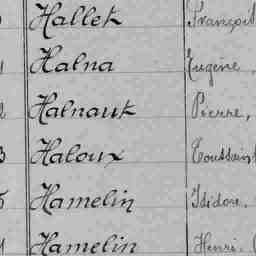 Hallet François
Halna Eugène,
Halnaut Pierre,
Haloux Toussaint
Hamelin Isidore.
Hamelin Henri.